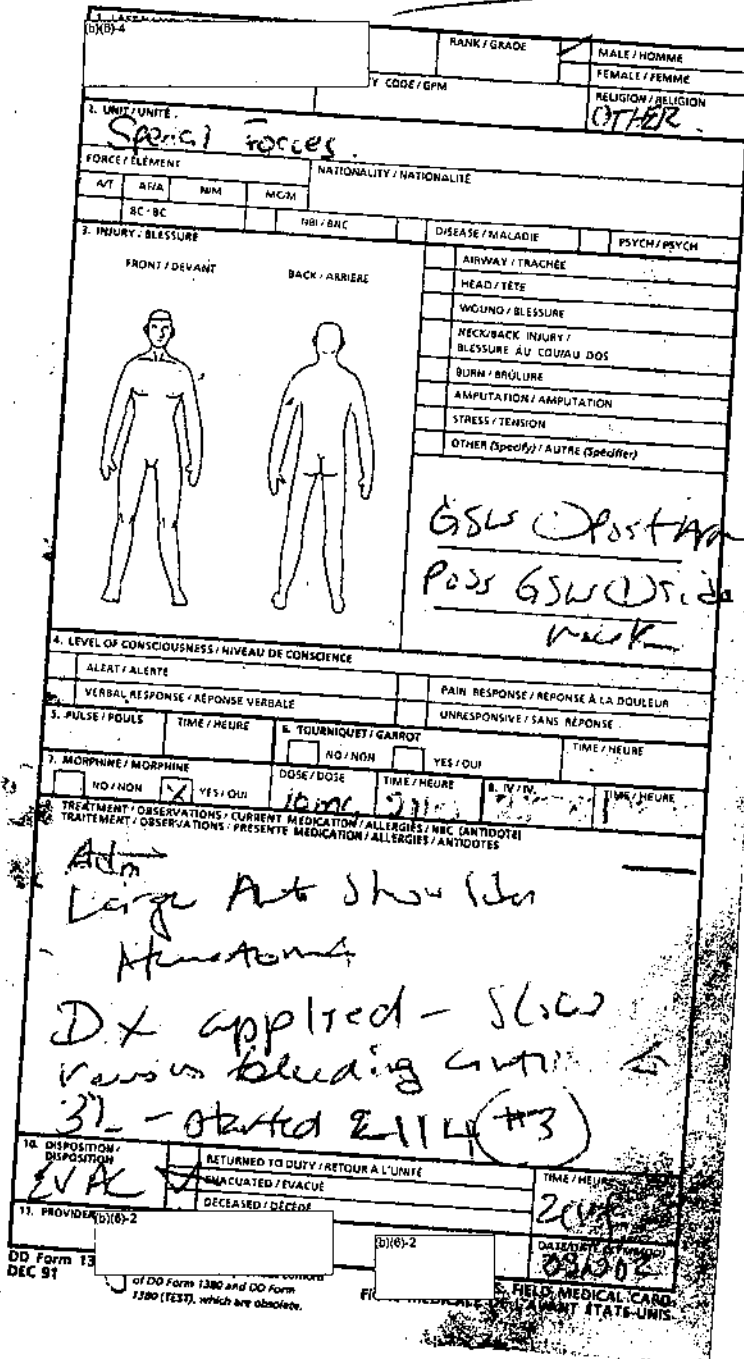 (b)(6)-4
RANK / GRADE
MALE / HOMME
FEMALE / FEMME
Y CODE / GPM
RELIGION / RELIGION
OTHER
2. UNIT / UNITÉ
Special Forces
FORCE / ÉLÉMENT
NATIONALITY / NATIONALITÉ
A/T AF/A N/M MC/M
BC / BC NBI / BNC DISEASE / MALADIE PSYCH / PSYCH
3. INJURY / BLESSURE
FRONT / DEVANT BACK / ARRIÈRE
AIRWAY / TRACHÉE
HEAD / TÊTE
WOUND / BLESSURE
NECK/BACK INJURY /
BLESSURE AU COU/AU DOS
BURN / BRÛLURE
AMPUTATION / AMPUTATION
STRESS / TENSION
OTHER (Specify) / AUTRE (Spécifier)
GSW Post Arm
Poss GSW side
neck
4. LEVEL OF CONSCIOUSNESS / NIVEAU DE CONSCIENCE
ALERT / ALERTE PAIN RESPONSE / RÉPONSE À LA DOULEUR
VERBAL RESPONSE / RÉPONSE VERBALE UNRESPONSIVE / SANS RÉPONSE
5. PULSE / POULS TIME / HEURE 6. TOURNIQUET / GARROT TIME / HEURE
NO / NON YES / OUI
7. MORPHINE / MORPHINE DOSE / DOSE TIME / HEURE 8. IV / IV. TIME / HEURE
NO / NON X YES / OUI 10mg
TREATMENT / OBSERVATIONS / CURRENT MEDICATION / ALLERGIES / NBC (ANTIDOTE)
TRAITEMENT / OBSERVATIONS / PRESENTE MEDICATION / ALLERGIES / ANTIDOTES
Adm
Large Ant Shoulder
Hematoma
DX applied - Slow
venous bleeding
started 2114 #3
10. DISPOSITION /
DISPOSITION
EVAC
RETURNED TO DUTY / RETOUR À L'UNITÉ
EVACUATED / ÉVACUÉ
DECEASED / DÉCÉDÉ
TIME / HEURE
11. PROVIDER
(b)(6)-2
(b)(6)-2
DD Form 13
DEC 91
of DD Form 1380 and DD Form
1380 (TEST), which are obsolete.
FIELD MEDICAL CARD
L'AVANT ÉTATS-UNIS